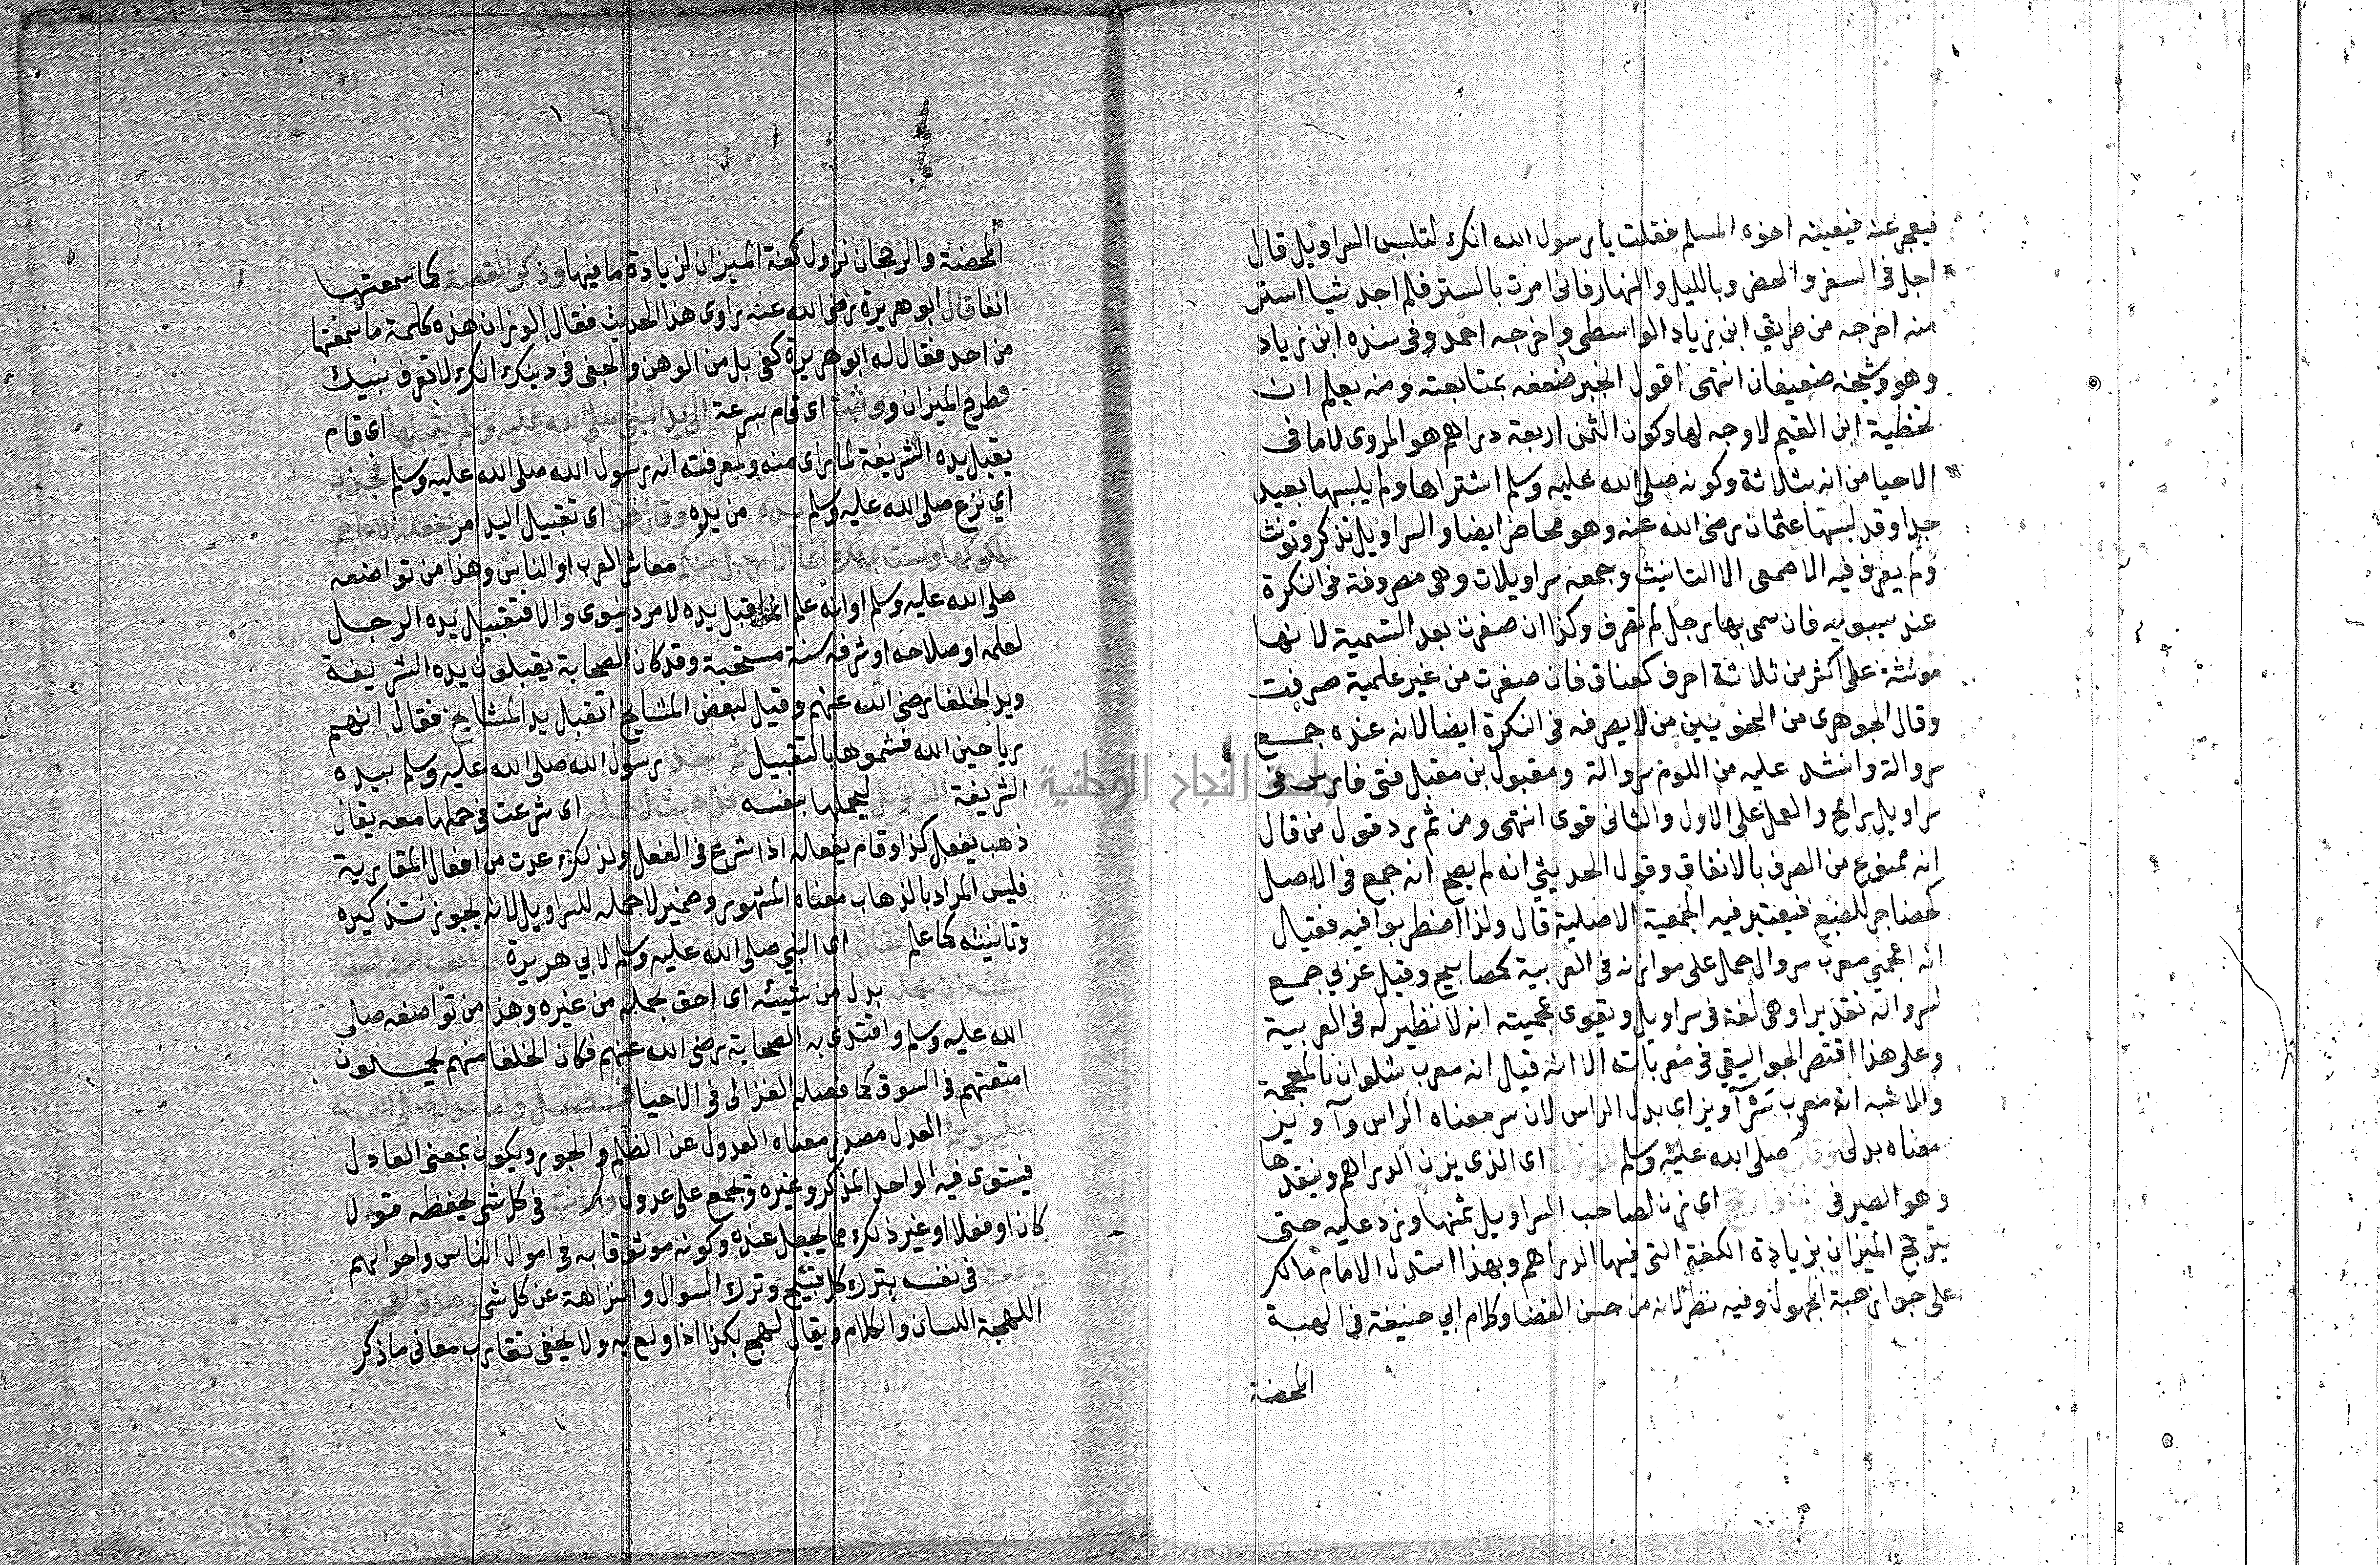 فيعجز عنه فيعينه اخوه المسلم فقلت يا رسول الله انك لتلبس السراويل قال
اجل في السفر والحضر وبالليل والنهار فاني امرت بالستر فلم اجد شيا استر
منه اخرجه من طريق ابن زياد الواسطي واخرجه احمد وفي سنده ابن زياد
وهو وشيخه ضعيفان انتهى اقول انجبر ضعفه بمتابعته ومنه يعلم ان
تخطية ابن القيم لا وجه لها وكون الثمن اربعة دراهم هو المروي لا ما في
الاحيا من انه ثلاثة وكونه صلى الله عليه وسلم اشتراها ولم يلبسها بعيد
جدا وقد لبسها عثمان رضي الله عنه وهو محاصر ايضا والسراويل تذكر وتونث
ولم يعرف فيه الاصمعي الا التانيث وجمعه سراويلات وهي مصروفة في النكرة
عند سيبويه فان سمي بها رجل لم تصرف وكذا ان صغرت بعد التسمية لانها
مونثة على اكثر من ثلاثة احرف كعناق فان صغرت من غير علمية صرفت
وقال الجوهري من النحويين من لا يصرفه في النكرة ايضا لانه عنده جمع
سروالة وانشد عليه من اللوم سروالة ومقبول بن مقبل فتى فارس في
سراويل رامح والعمل على الاول والثاني قوي انتهى ومن ثم رد قول من قال
انه ممنوع من الصرف بالاتفاق وقول الحديثي انه لم يصح انه جمع في الاصل
كحضاجر للضبع فيعتبر فيه الجمعية الاصلية قال ولذا اضطربوا فيه فقيل
انه اعجمي معرب سروال حمل على موازنه في العربية كمصابيح وقيل عربي جمع
لسروالة تقديرا وهي لغة في سراويل ويقوي عجميته انه لا نظير له في العربية
وعلى هذا اقتصر الجواليقي في معرباته الا انه قيل انه معرب شلوان بالمعجمة
والاشبه انه معرب سرآويز اي بدل الراس لان سر معناه الراس وآويز
معناه بدلى وقال صلى الله عليه وسلم للوزان اي الذي يزن الدراهم وينقدها
وهو الصيرفي زن وارجح اي زن لصاحب السراويل ثمنها وزد عليه حتى
يترجح الميزان بزيادة الكفة التي فيها الدراهم وبهذا استدل الامام مالك
على جواز هبة المجهول وفيه نظر لانه من حسن القضا وكلام ابي حنيفة في الهبة
المحضة
المحضة والرجحان نزول كفة الميزان لزيادة ما فيها وذكر القصة كما سمعتها
انفا قال ابو هريرة رضي الله عنه راوي هذا الحديث فقال الوزان هذه كلمة ما سمعتها
من احد فقال له ابو هريرة كفى بك من الوهن والجفى في دينك انك لا تعرف نبيك
فطرح الميزان ووثب اي قام بسرعة الى يد النبي صلى الله عليه وسلم يقبلها اي قام
يقبل يده الشريفة لما راى منه ولمعرفته انه رسول الله صلى الله عليه وسلم فجذب
اي نزع صلى الله عليه وسلم يده من يده وقال هذا اي تقبيل اليد امر يفعله الاعاجم
بملوكها ولست بملك انما انا رجل منكم معاشر العرب او الناس وهذا من تواضعه
صلى الله عليه وسلم او انه علم انما قبل يده لامر دنيوي والا فتقبيل يده الرجل
لعلمه او صلاحه او شرفه سنة مستحبة وقد كان الصحابة يقبلون يده الشريفة
ويد الخلفا رضي الله عنهم وقيل لبعض المشايخ اتقبل يد المشايخ فقال انهم
رياحين الله فشموها بالتقبيل ثم اخذ رسول الله صلى الله عليه وسلم بيده
الشريفة السراويل ليحملها بنفسه فذهبت لاحمله اي شرعت في حملها معه يقال
ذهب يفعل كذا وقام يفعاله اذا شرع في الفعل ولذلك عدت من افعال المقاربة
فليس المراد بالذهاب معناه المشهور وضمير لاحمله للسراويل لانه يجوز تذكيره
وتانيثه كما علم فقال اي النبي صلى الله عليه وسلم لابي هريرة صاحب الشي احق
بشيئه ان يحمله بدل من شيئه اي احق بحمله من غيره وهذا من تواضعه صلى
الله عليه وسلم واقتدى به الصحابة رضي الله عنهم فكان الخلفا منهم يحملون
امتعتهم في السوق كما فصله الغزالي في الاحيا فصل واما عدله صلى الله
عليه وسلم العدل مصدر معناه العدول عن الظلم والجور ويكون بمعنى العادل
فيستوي فيه الواحد المذكر وغيره وتجمع على عدول وامانته في كل شي يحفظه قولا
كان او فعلا او غير ذلك مما يجعل عنده وكونه موثوقا به في اموال الناس واحوالهم
وعفته في نفسه بترك كل قبيح وترك السوال والنزاهة عن كل شي وصدق لهجته
اللهجة اللسان والكلام ويقال لهج بكذا اذا ولع به ولا يخفى تقارب معاني ما ذكر
جامعة النجاح الوطنية